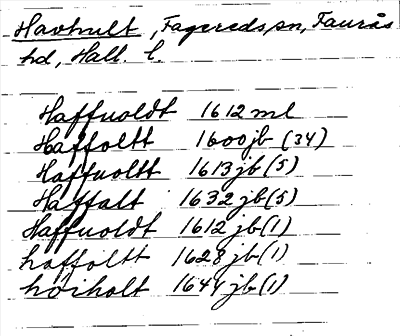 Havhult, Fagereds sn, Faurås
hd, Hall. l.
Haffuoldt 1612 ml
Haffoltt 1600 jb (34)
Haffuoltt 1613 jb (5)
Haffalt 1632 jb (5)
Haffuoldt 1612 jb (1)
haffoltt 1628 jb (1)
höiholt 1644 jb (1)